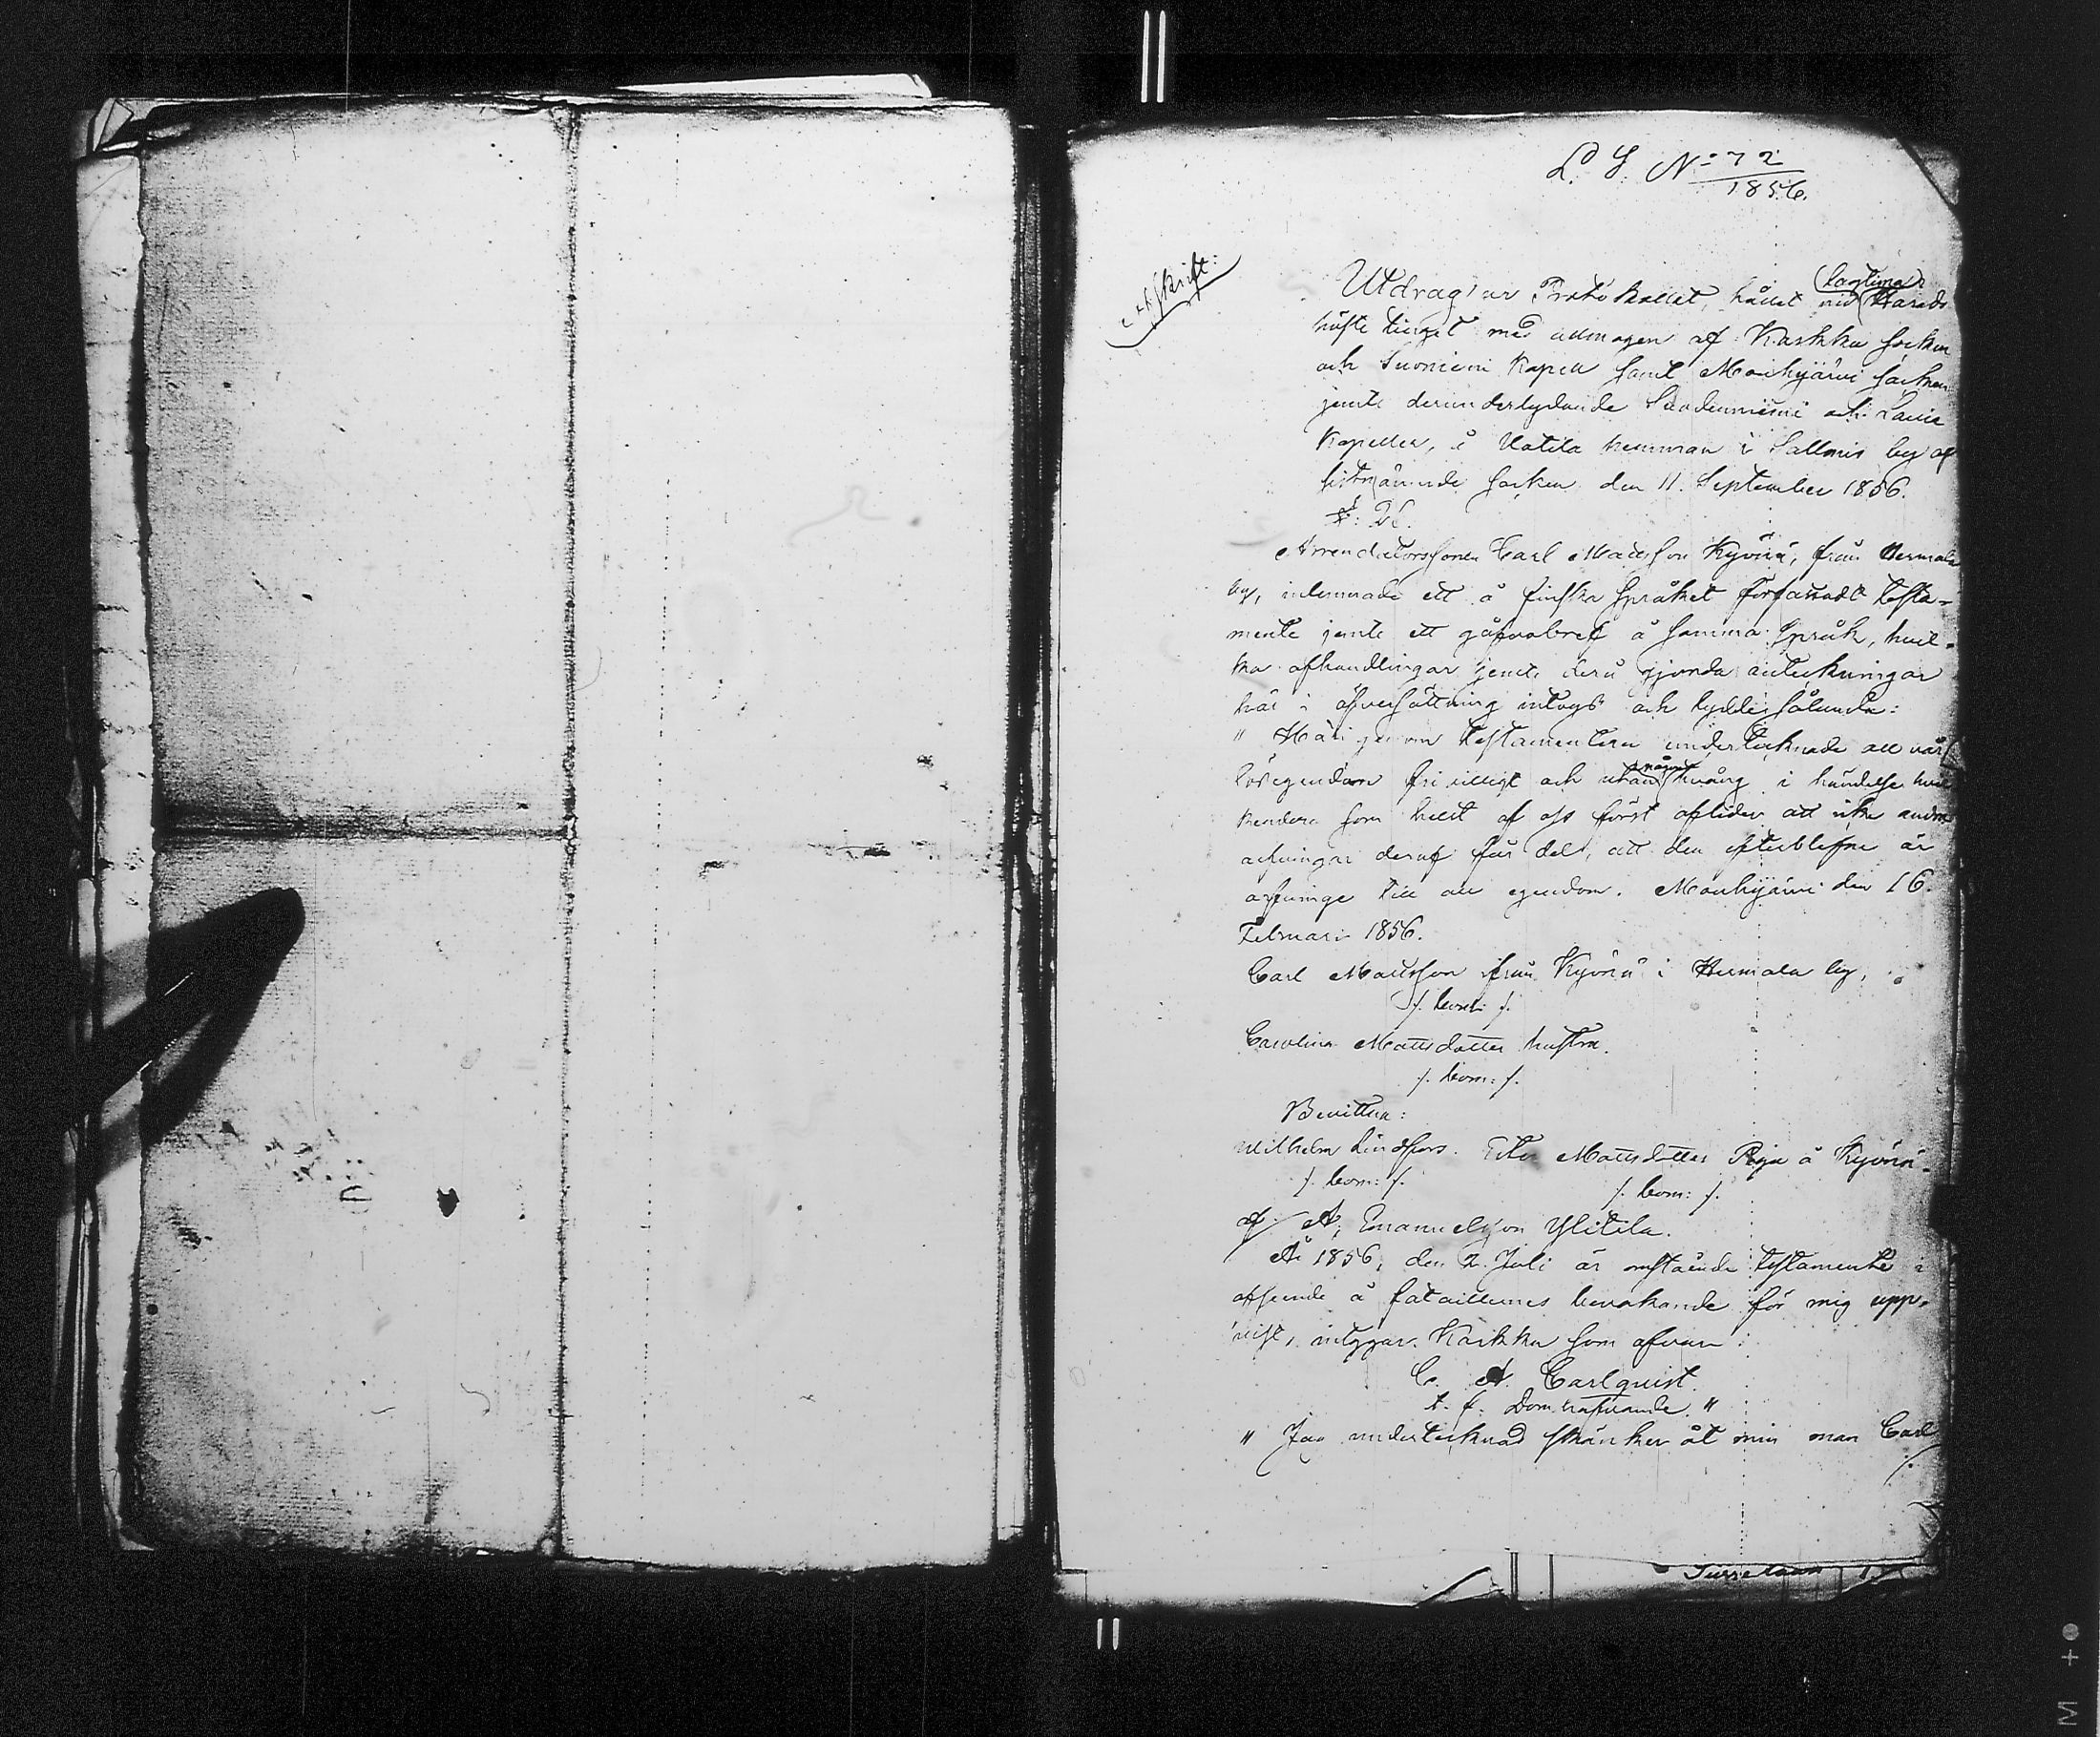 L. S. No 72
1856.
Afskrift:
Utdrag ur Protokollet, hållet vid lagtima Härads
höfte tinget med allmogen af Karkku Socken
och Suoniemi Kapell samt Mouhijärvi Socken
jemte derunderlydande Suodenniemi och Lavia
Kapeller, å Uotila hemman i Sallmis by af
sistnämnde Socken den 11 September 1856.
§: 26.
Arrendatorssonen Carl Mattsson Kyörä, från Hermala
by, inlemnade ett å finska Språket författadt testa-
mente jemte ett gåfvobref å samma Språk, hvil-
ka afhandlingar jemte derå gjorda anteckningar
här i öfversättning intogs och lydde sålunda:
" Här igenom testamentera undertecknade all vår
lösegendom friwilligt och utan något tvång i händelse hvil
kendera som helst af oss först aflider att icke andra
arfvingar deraf får del, att den efterblefne är
arfvinge till all egendom. Mouhijärvi den 16
Februari 1856.
Carl Mattsson från Kyörä i Hermala by,
/. bom: /.
Carolina Mattsdotter hustru.
/. bom: /.
Bevittna:
Wilhelm Lindfors. Mattsdotter Piga å Kyörä.
/. bom: /. /. bom: /.
af A, Emanuelsson Ylitila.
År 1856, den 2 Juli är omstående testamente i
afseende å fataliernes bevakande för mig upp-
vist, intygar. Karkku som ofvan:
C. A. Carlquist.
t. f. Domhafvande. "
" Jag undertecknad skänker åt min man Carl